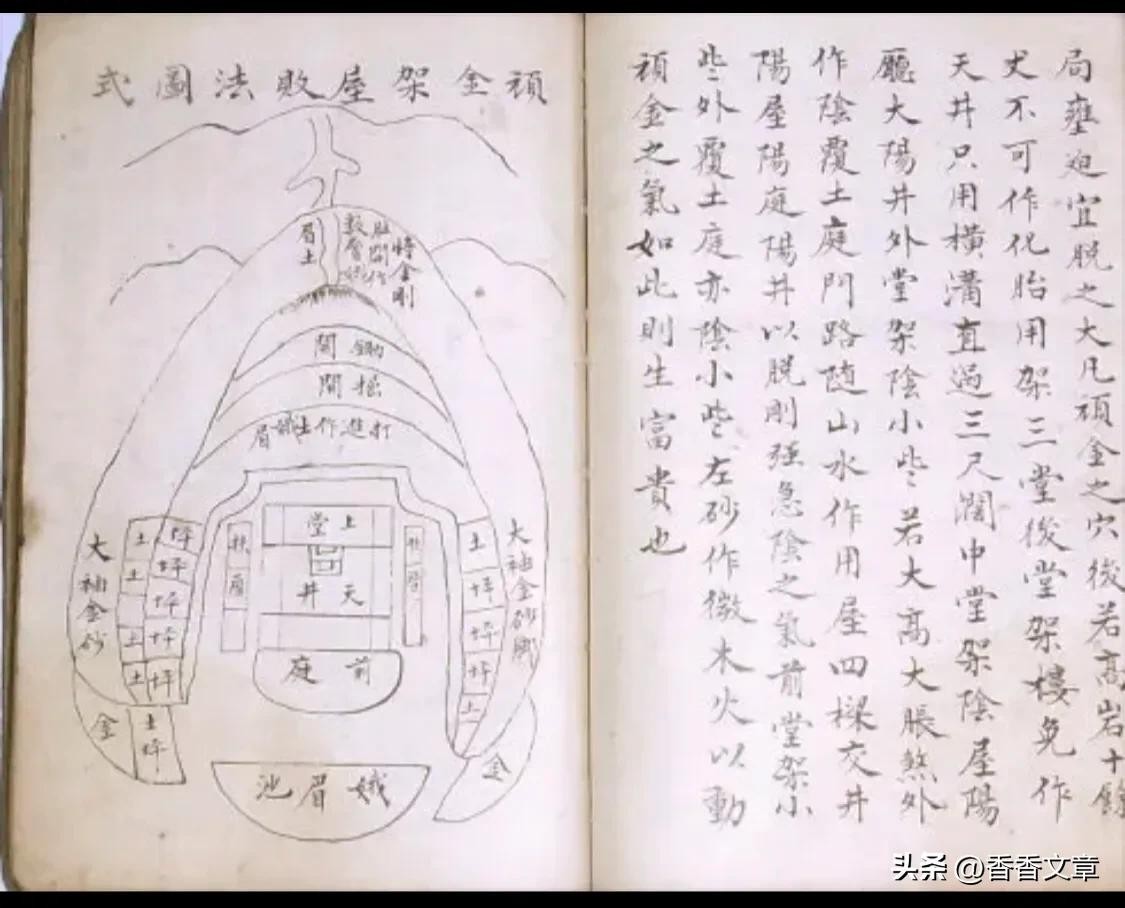 局壅迫宜脱之大凡頑金之穴後若高岩十餘
丈不可作化胎用架三堂後堂架樓免作
天井只用橫溝直過三尺濶中堂架陰屋陽
廳大陽井外堂架陰小些若大高大脹煞外
作陰覆土庭門路随山水作用屋四樑交井
陽屋陽庭陽井以脱剛強急陰之氣前堂架小
些外覆土庭亦陰小些左砂作微木火以動
頑金之氣如此則生富貴也
頑金架屋敗法圖式
將金剛
眉土
鋤開
掘開
打進作土娥眉
上堂
天井
前庭
娥眉池
大袖金砂
大袖金砂
土
土
土
土
坪
坪
坪
坪
坪
土
坪
坪
坪
土
金
土坪
金
头条 @香香文章